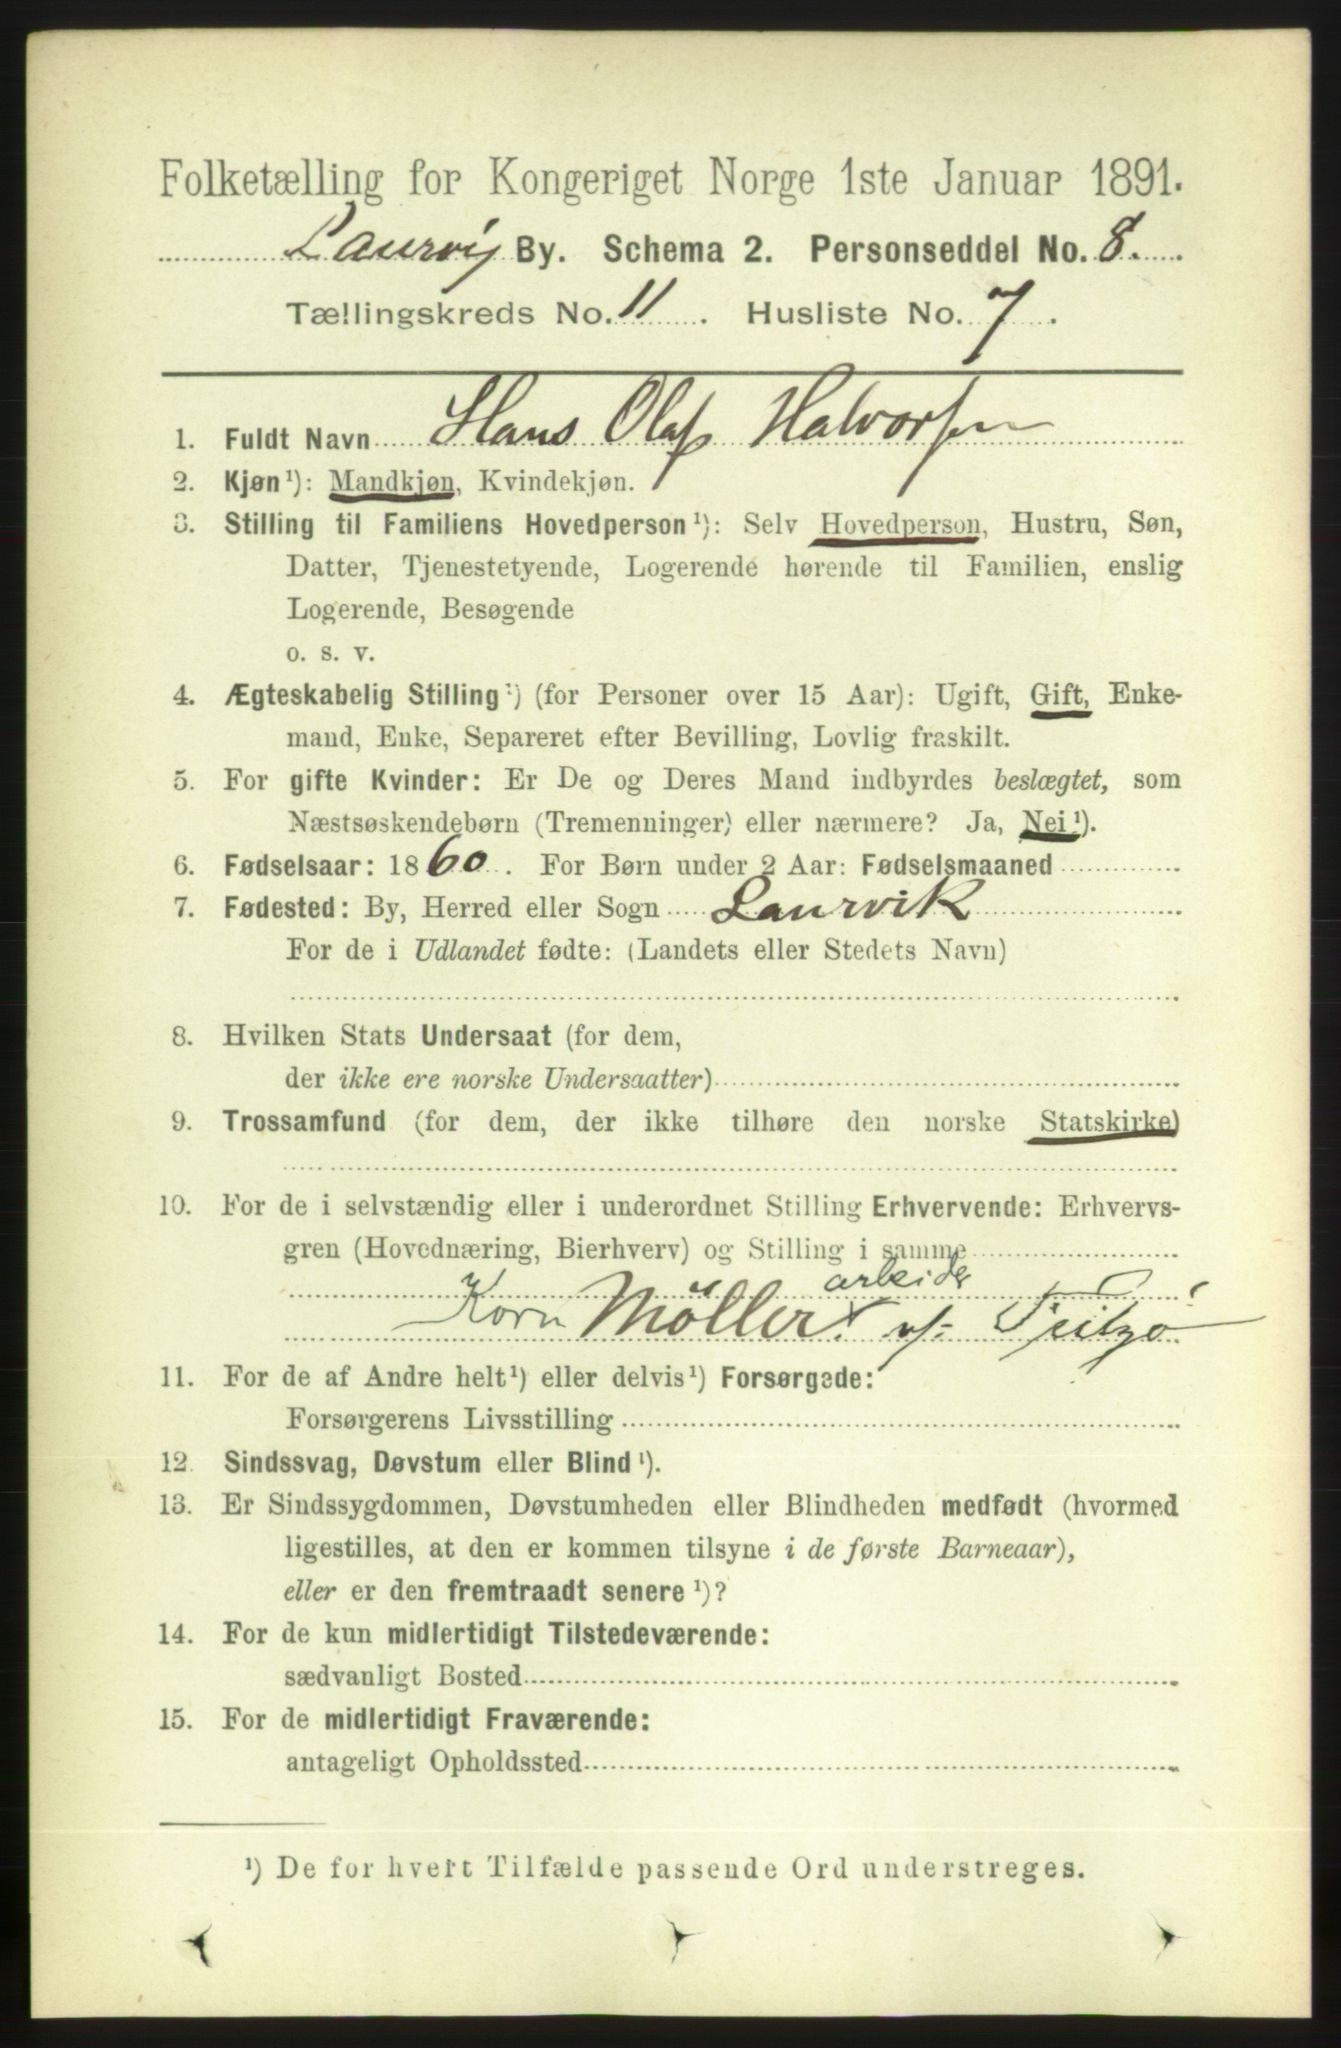 Folketælling for Kongeriget Norge 1ste Januar 1891.
Laurvig By. Schema 2. Personseddel No. 8.
Tællingskreds No. 11. Husliste No. 7.
1. Fuldt Navn Hans Olaf Halvorsen
2. Kjøn¹): Mandkjøn, Kvindekjøn.
3. Stilling til Familiens Hovedperson¹): Selv Hovedperson, Hustru, Søn,
Datter, Tjenestetyende, Logerende hørende til Familien, enslig
Logerende, Besøgende
o. s. v.
4. Ægteskabelig Stilling¹) (for Personer over 15 Aar): Ugift, Gift, Enke-
mand, Enke, Separeret efter Bevilling, Lovlig fraskilt.
5. For gifte Kvinder: Er De og Deres Mand indbyrdes beslægtet, som
Næstsøskendebørn (Tremenninger) eller nærmere? Ja, Nei¹).
6. Fødselsaar: 1860. For Børn under 2 Aar: Fødselsmaaned
7. Fødested: By, Herred eller Sogn Laurvik
For de i Udlandet fødte: (Landets eller Stedets Navn)
8. Hvilken Stats Undersaat (for dem,
der ikke ere norske Undersaatter)
9. Trossamfund (for dem, der ikke tilhøre den norske Statskirke)
10. For de i selvstændig eller i underordnet Stilling Erhvervende: Erhvervs-
gren (Hovednæring, Bierhverv) og Stilling i samme
arbeider
Korn Möller v/
11. For de af Andre helt¹) eller delvis¹) Forsørgede:
Forsørgerens Livsstilling
12. Sindssvag, Døvstum eller Blind¹).
13. Er Sindssygdommen, Døvstumheden eller Blindheden medfødt (hvormed
ligestilles, at den er kommen tilsyne i de første Barneaar),
eller er den fremtraadt senere¹)?
14. For de kun midlertidigt Tilstedeværende:
sædvanligt Bosted
15. For de midlertidigt Fraværende:
antageligt Opholdssted
¹) De for hvert Tilfælde passende Ord understreges.